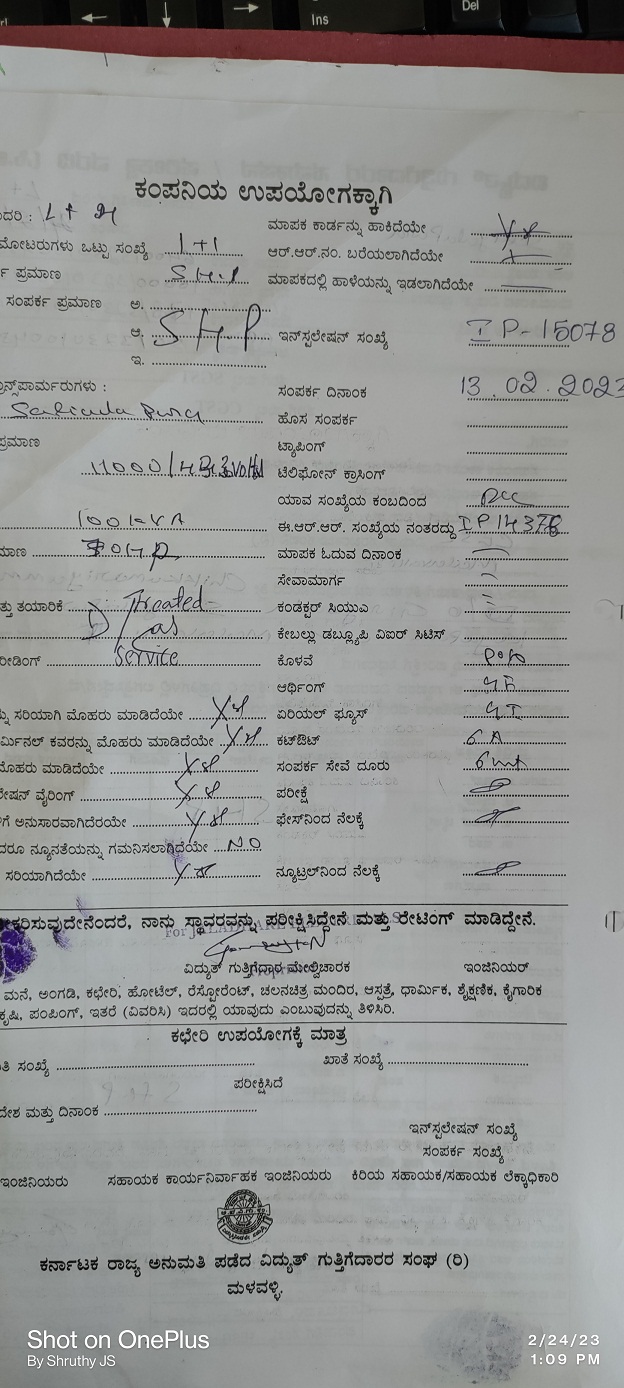 Ins
Del
ಕಂಪನಿಯ ಉಪಯೋಗಕ್ಕಾಗಿ
ದರಿ : L +
ಮಾಪಕ ಕಾರ್ಡನ್ನು ಹಾಕಿದೆಯೇ
ಮೋಟರುಗಳು ಒಟ್ಟು ಸಂಖ್ಯೆ 1+1
ಆರ್.ಆರ್.ನಂ. ಬರೆಯಲಾಗಿದೆಯೇ
ಪ್ರಮಾಣ
ಮಾಪಕದಲ್ಲಿ ಹಾಳೆಯನ್ನು ಇಡಲಾಗಿದೆಯೇ
ಸಂಪರ್ಕ ಪ್ರಮಾಣ ಅ.
ಆ. 5 H P ಇನ್‌ಸ್ಟಲೇಷನ್ ಸಂಖ್ಯೆ IP-15078
ಇ.
ನ್ಸ್‌ಪಾರ್ಮರುಗಳು :
ಸಂಪರ್ಕ ದಿನಾಂಕ 13.02.2023
ಹೊಸ ಸಂಪರ್ಕ
ಪ್ರಮಾಣ
ಟ್ಯಾಪಿಂಗ್
11000/433 Volts ಟೆಲಿಫೋನ್ ಕ್ರಾಸಿಂಗ್
ಯಾವ ಸಂಖ್ಯೆಯ ಕಂಬದಿಂದ
100 KVA ಈ.ಆರ್.ಆರ್. ಸಂಖ್ಯೆಯ ನಂತರದ್ದು IP14376
ಮಾಣ ಮಾಪಕ ಓದುವ ದಿನಾಂಕ
ಸೇವಾಮಾರ್ಗ
ತ್ತು ತಯಾರಿಕೆ Treated ಕಂಡಕ್ಟರ್ ಸಿಯುಎ
D/ as ಕೇಬಲ್ಲು ಡಬ್ಲ್ಯೂಪಿ ವಿಐರ್ ಸಿಟಿಸ್
ರೀಡಿಂಗ್ Service ಕೊಳವೆ
ಆರ್ಥಿಂಗ್
ನ್ನು ಸರಿಯಾಗಿ ಮೊಹರು ಮಾಡಿದೆಯೇ ಏರಿಯಲ್ ಫ್ಯೂಸ್ G I
ರ್ಮಿನಲ್ ಕವರನ್ನು ಮೊಹರು ಮಾಡಿದೆಯೇ ಕಟ್‌ಔಟ್ 6 A
ಮೊಹರು ಮಾಡಿದೆಯೇ ಸಂಪರ್ಕ ಸೇವೆ ದೂರು
ಲೇಷನ್ ವೈರಿಂಗ್ ಪರೀಕ್ಷೆ
ಗೆ ಅನುಸಾರವಾಗಿದೆರಯೇ ಫೇಸ್‌ನಿಂದ ನೆಲಕ್ಕೆ
ದರೂ ನ್ಯೂನತೆಯನ್ನು ಗಮನಿಸಲಾಗಿದೆಯೇ NO
ಸರಿಯಾಗಿದೆಯೇ ನ್ಯೂಟ್ರಲ್‌ನಿಂದ ನೆಲಕ್ಕೆ
ಕರಿಸುವುದೇನೆಂದರೆ, ನಾನು ಸ್ಥಾವರವನ್ನು ಪರೀಕ್ಷಿಸಿದ್ದೇನೆ ಮತ್ತು ರೇಟಿಂಗ್ ಮಾಡಿದ್ದೇನೆ.
ವಿದ್ಯುತ್ ಗುತ್ತಿಗೆದಾರ ಮೇಲ್ವಿಚಾರಕ ಇಂಜಿನಿಯರ್
ಮನೆ, ಅಂಗಡಿ, ಕಛೇರಿ, ಹೋಟೆಲ್, ರೆಸ್ಟೋರೆಂಟ್, ಚಲನಚಿತ್ರ ಮಂದಿರ, ಆಸ್ಪತ್ರೆ, ಧಾರ್ಮಿಕ, ಶೈಕ್ಷಣಿಕ, ಕೈಗಾರಿಕ
ಕೃಷಿ, ಪಂಪಿಂಗ್, ಇತರೆ (ವಿವರಿಸಿ) ಇದರಲ್ಲಿ ಯಾವುದು ಎಂಬುವುದನ್ನು ತಿಳಿಸಿರಿ.
ಕಛೇರಿ ಉಪಯೋಗಕ್ಕೆ ಮಾತ್ರ
ತಿ ಸಂಖ್ಯೆ ಖಾತೆ ಸಂಖ್ಯೆ
ಪರೀಕ್ಷಿಸಿದೆ
ದೇಶ ಮತ್ತು ದಿನಾಂಕ
ಇನ್‌ಸ್ಟಲೇಷನ್ ಸಂಖ್ಯೆ
ಸಂಪರ್ಕ ಸಂಖ್ಯೆ
ಇಂಜಿನಿಯರು ಸಹಾಯಕ ಕಾರ್ಯನಿರ್ವಾಹಕ ಇಂಜಿನಿಯರು ಕಿರಿಯ ಸಹಾಯಕ/ಸಹಾಯಕ ಲೆಕ್ಕಾಧಿಕಾರಿ
ಕರ್ನಾಟಕ ರಾಜ್ಯ ಅನುಮತಿ ಪಡೆದ ವಿದ್ಯುತ್ ಗುತ್ತಿಗೆದಾರರ ಸಂಘ (ರಿ)
ಮಳವಳ್ಳಿ.
Shot on OnePlus
By Shruthy JS
2/24/23
1:09 PM